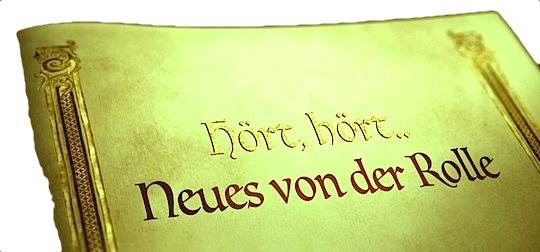 Hört, hört..
Neues von der Rolle